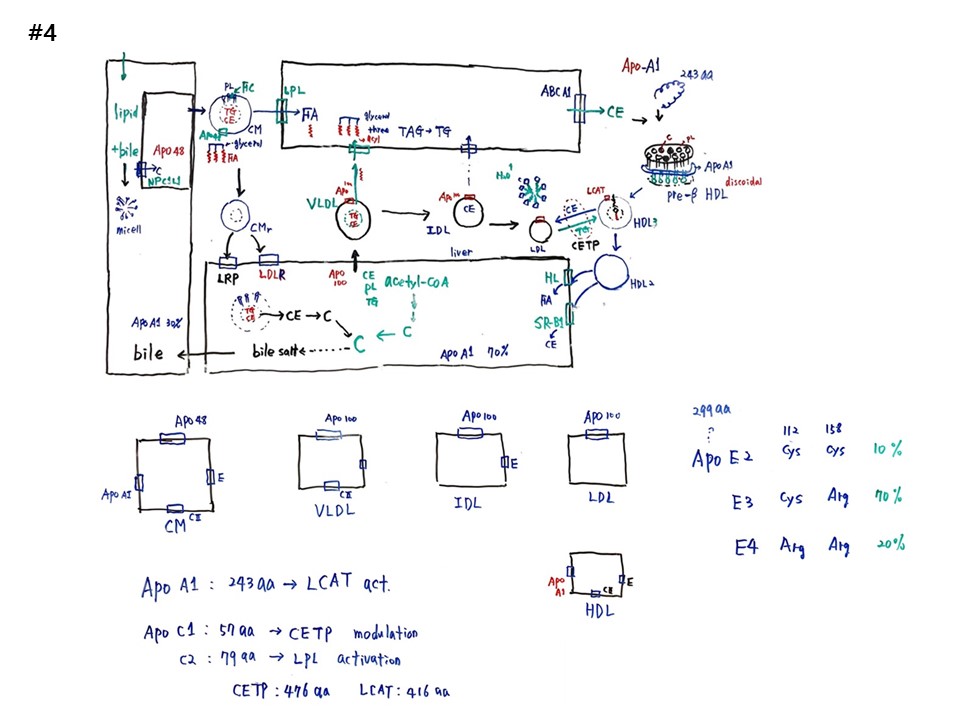 #4
lipid
+bile
micell
Apo 48
C
NPC1L1
ApoA1 30%
bile
PL FC
TG
CE
CM
glycerol
FA
CMr
LRP
LDLR
LPL
FA
glycerol
three
acyl
TAG → TG
ABCA1
CE
Apo-A1
243 aa
C
PL
ApoA1
discoidal
pre-β HDL
VLDL
Apo 100
TG
CE
IDL
CE
H2O
LDL
CE
TG
CETP
LCAT
HDL3
HDL2
liver
Apo 100
CE
PL
TG
acetyl-CoA
C
C
CE → C
bile salt
ApoA1 70%
HL
FA
SR-B1
CE
Apo 48
Apo AI
E
CII
CM
Apo 100
CII
VLDL
Apo 100
E
IDL
Apo 100
LDL
Apo A1
E
CE
HDL
299 aa
112 158
Apo E2 Cys Cys 10%
E3 Cys Arg 70%
E4 Arg Arg 20%
Apo A1 : 243 aa → LCAT act.
Apo C1 : 57 aa → CETP modulation
C2 : 79 aa → LPL activation
CETP : 476 aa LCAT : 416 aa